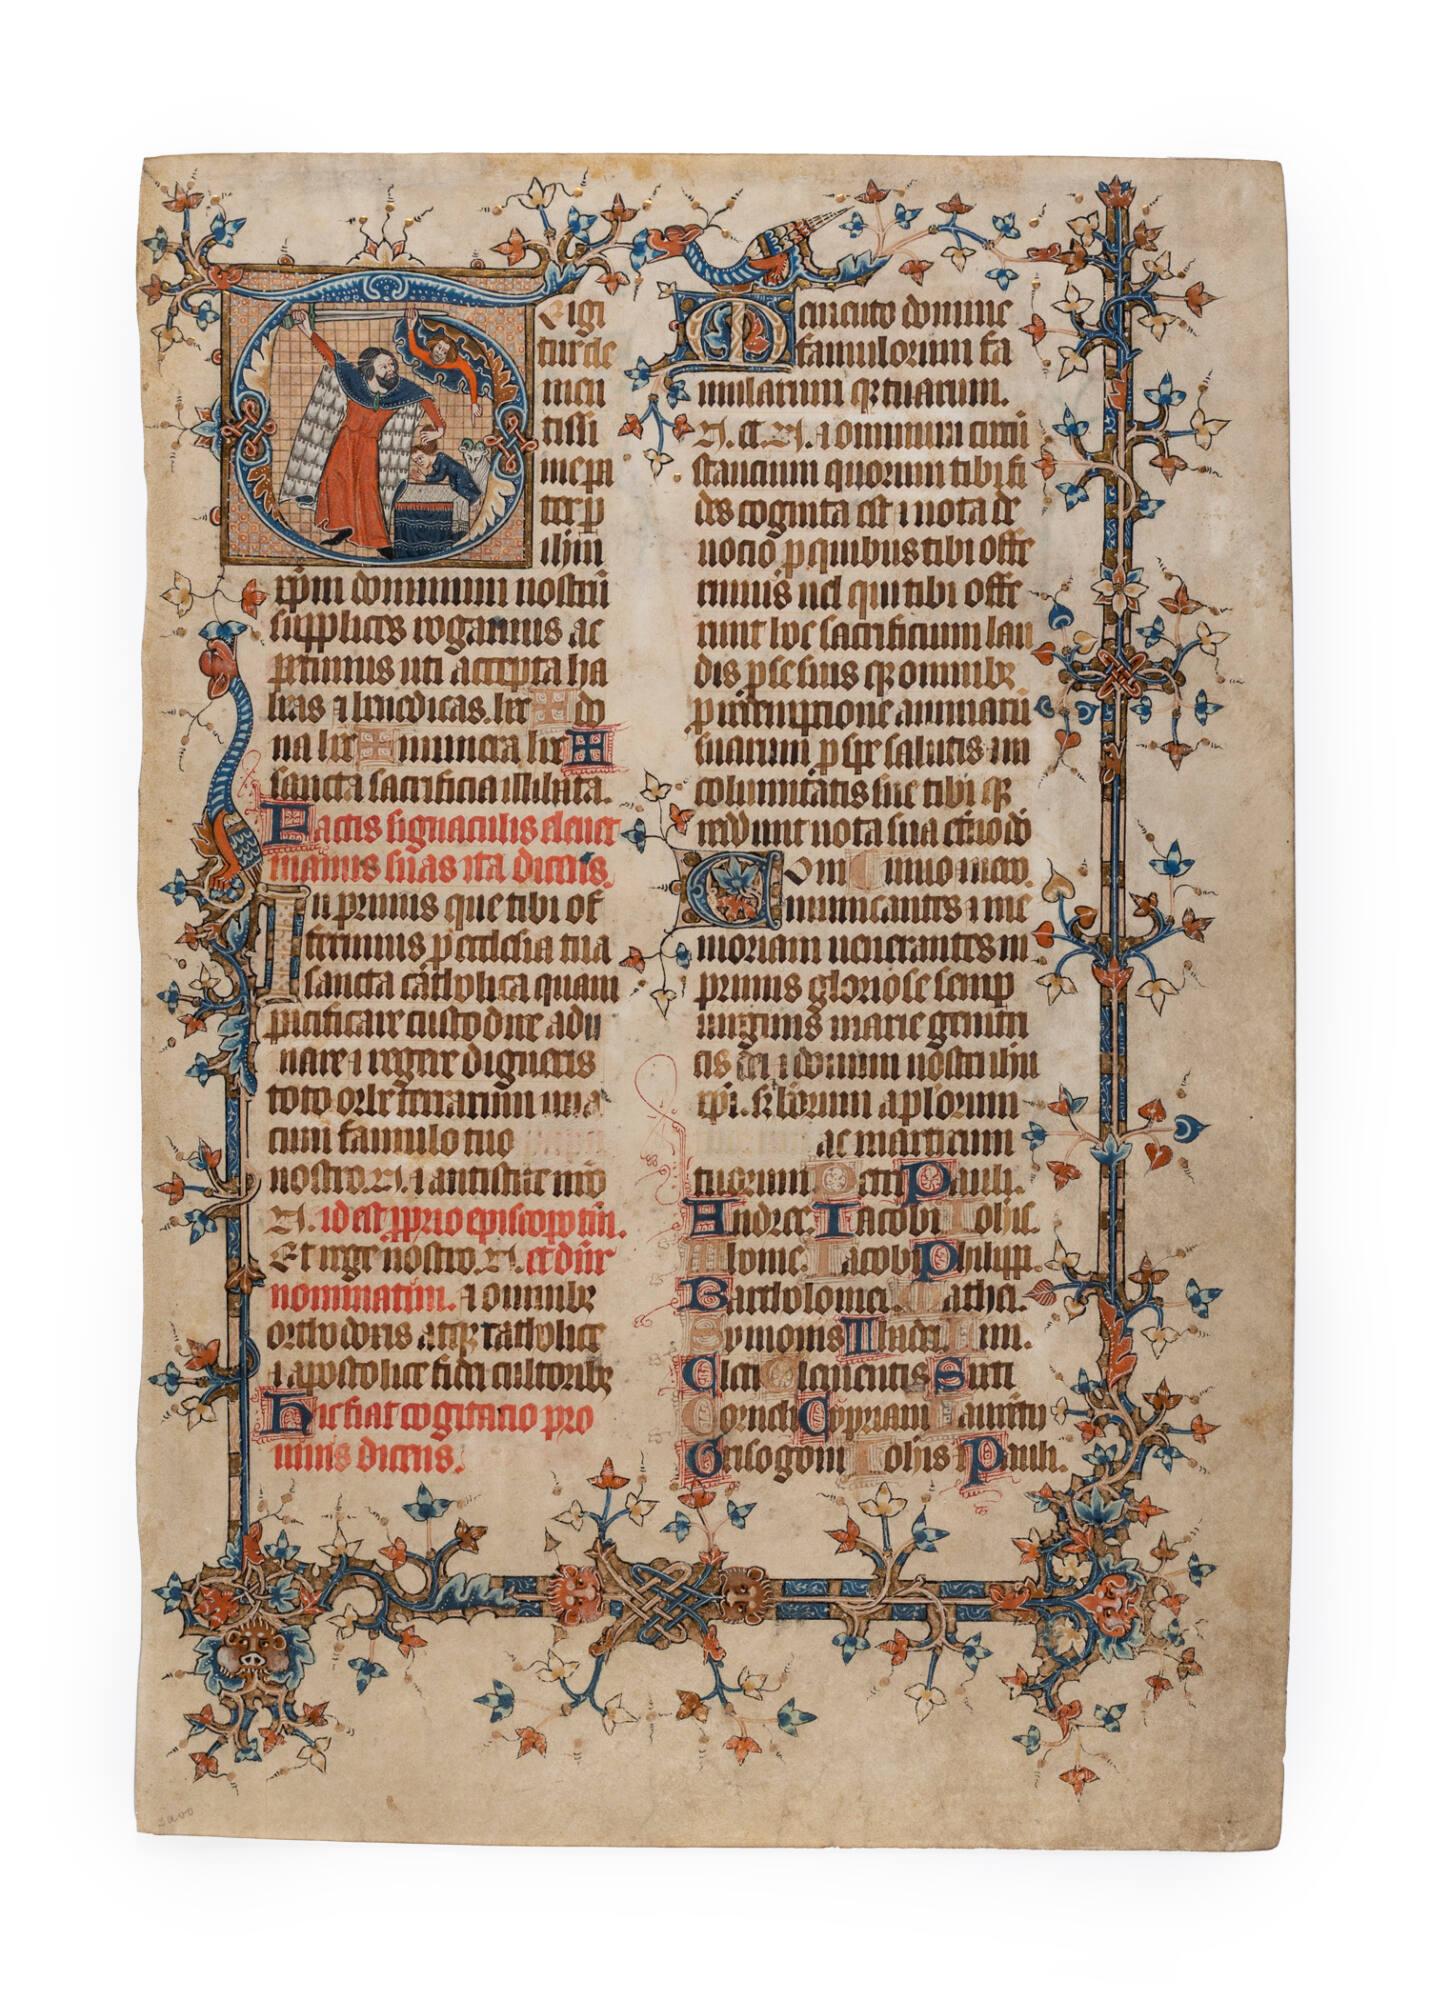 T
eigi
tur cle
men
tissi
me pa
ter p
ihm
xp̄m dominum nostrū
supplices rogamus ac
petimus uti accepta ha
beas ⁊ benedicas. hec ✠ do
na hec ✠ munera hec ✠
sancta sacrificia illibata.
Factis signaculis eleuet
manus suas ita dicens.
In primis que tibi of
ferimus p ecclesia tua
sancta catholica quam
pacificare custodire adu
nare ⁊ regere digneris
toto orbe terrarum una
cum famulo tuo papa
nostro .N. ⁊ antistite nr̄o
.N. id est pprio episcopo tm̄.
Et rege nostro .N. et dūr
nominatim. ⁊ omnibꝫ
orthodoxis atqꝫ catholice
⁊ apostolice fidei cultoribꝫ
Hic fiat cogitatio pro
uiuis dicens.
Memento domine
famulorum fa
mularum qꝫ tuarum.
.N. et .N. ⁊ omnium circū
stancium quorum tibi fi
des cognita est ⁊ nota de
uocio. p quibus tibi offe
rimus uel qui tibi offe
runt hoc sacrificium lau
dis p se suis qꝫ omnibꝫ
p redemptione animarū
suarum p spe salutis ⁊ in
columitatis sue tibi qꝫ
reddunt uota sua et̄no dō
uiuo ⁊ uero.
Communicantes ⁊ me
moriam uenerantes in
primis gloriose semp
uirginis marie genitri
cis dei ⁊ domini nostri ihu
xp̄i. s⁊ b̄orum aplorum
ac martirum
tuorum Petri Pauli.
Andree. Iacobi Iohis.
Thome. Iacobi Philippi.
Bartholomei. Mathei.
Symonis Thadei. Lini.
Cleti Clementis Sixti
Cornelii Cypriani Laurētii
Grisogoni Iohis ⁊ Pauli.